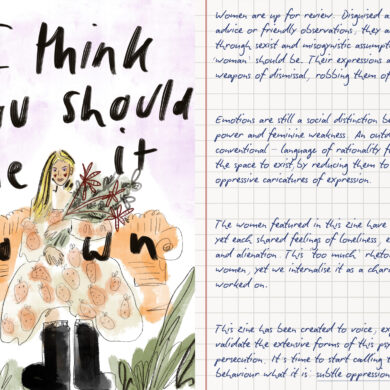 I think
you should
it
own
Women are up for review. Disguised a
advice or friendly observations, they a
through sexist and misogynistic assump
woman should be. Their expressions a
weapons of dismissal, robbing them of
Emotions are still a social distinction be
power and feminine weakness. An out
conventional - language of rationality f
the space to exist by reducing them to
oppressive caricatures of expression.
The women featured in this zine have
yet each shared feelings of loneliness, e
and alienation. This too much rheto
women, yet we internalise it as a char
worked on.
This zine has been created to voice, ex
validate the extensive forms of this ps
persecution. It's time to start calling
behaviour what it is: subtle oppression